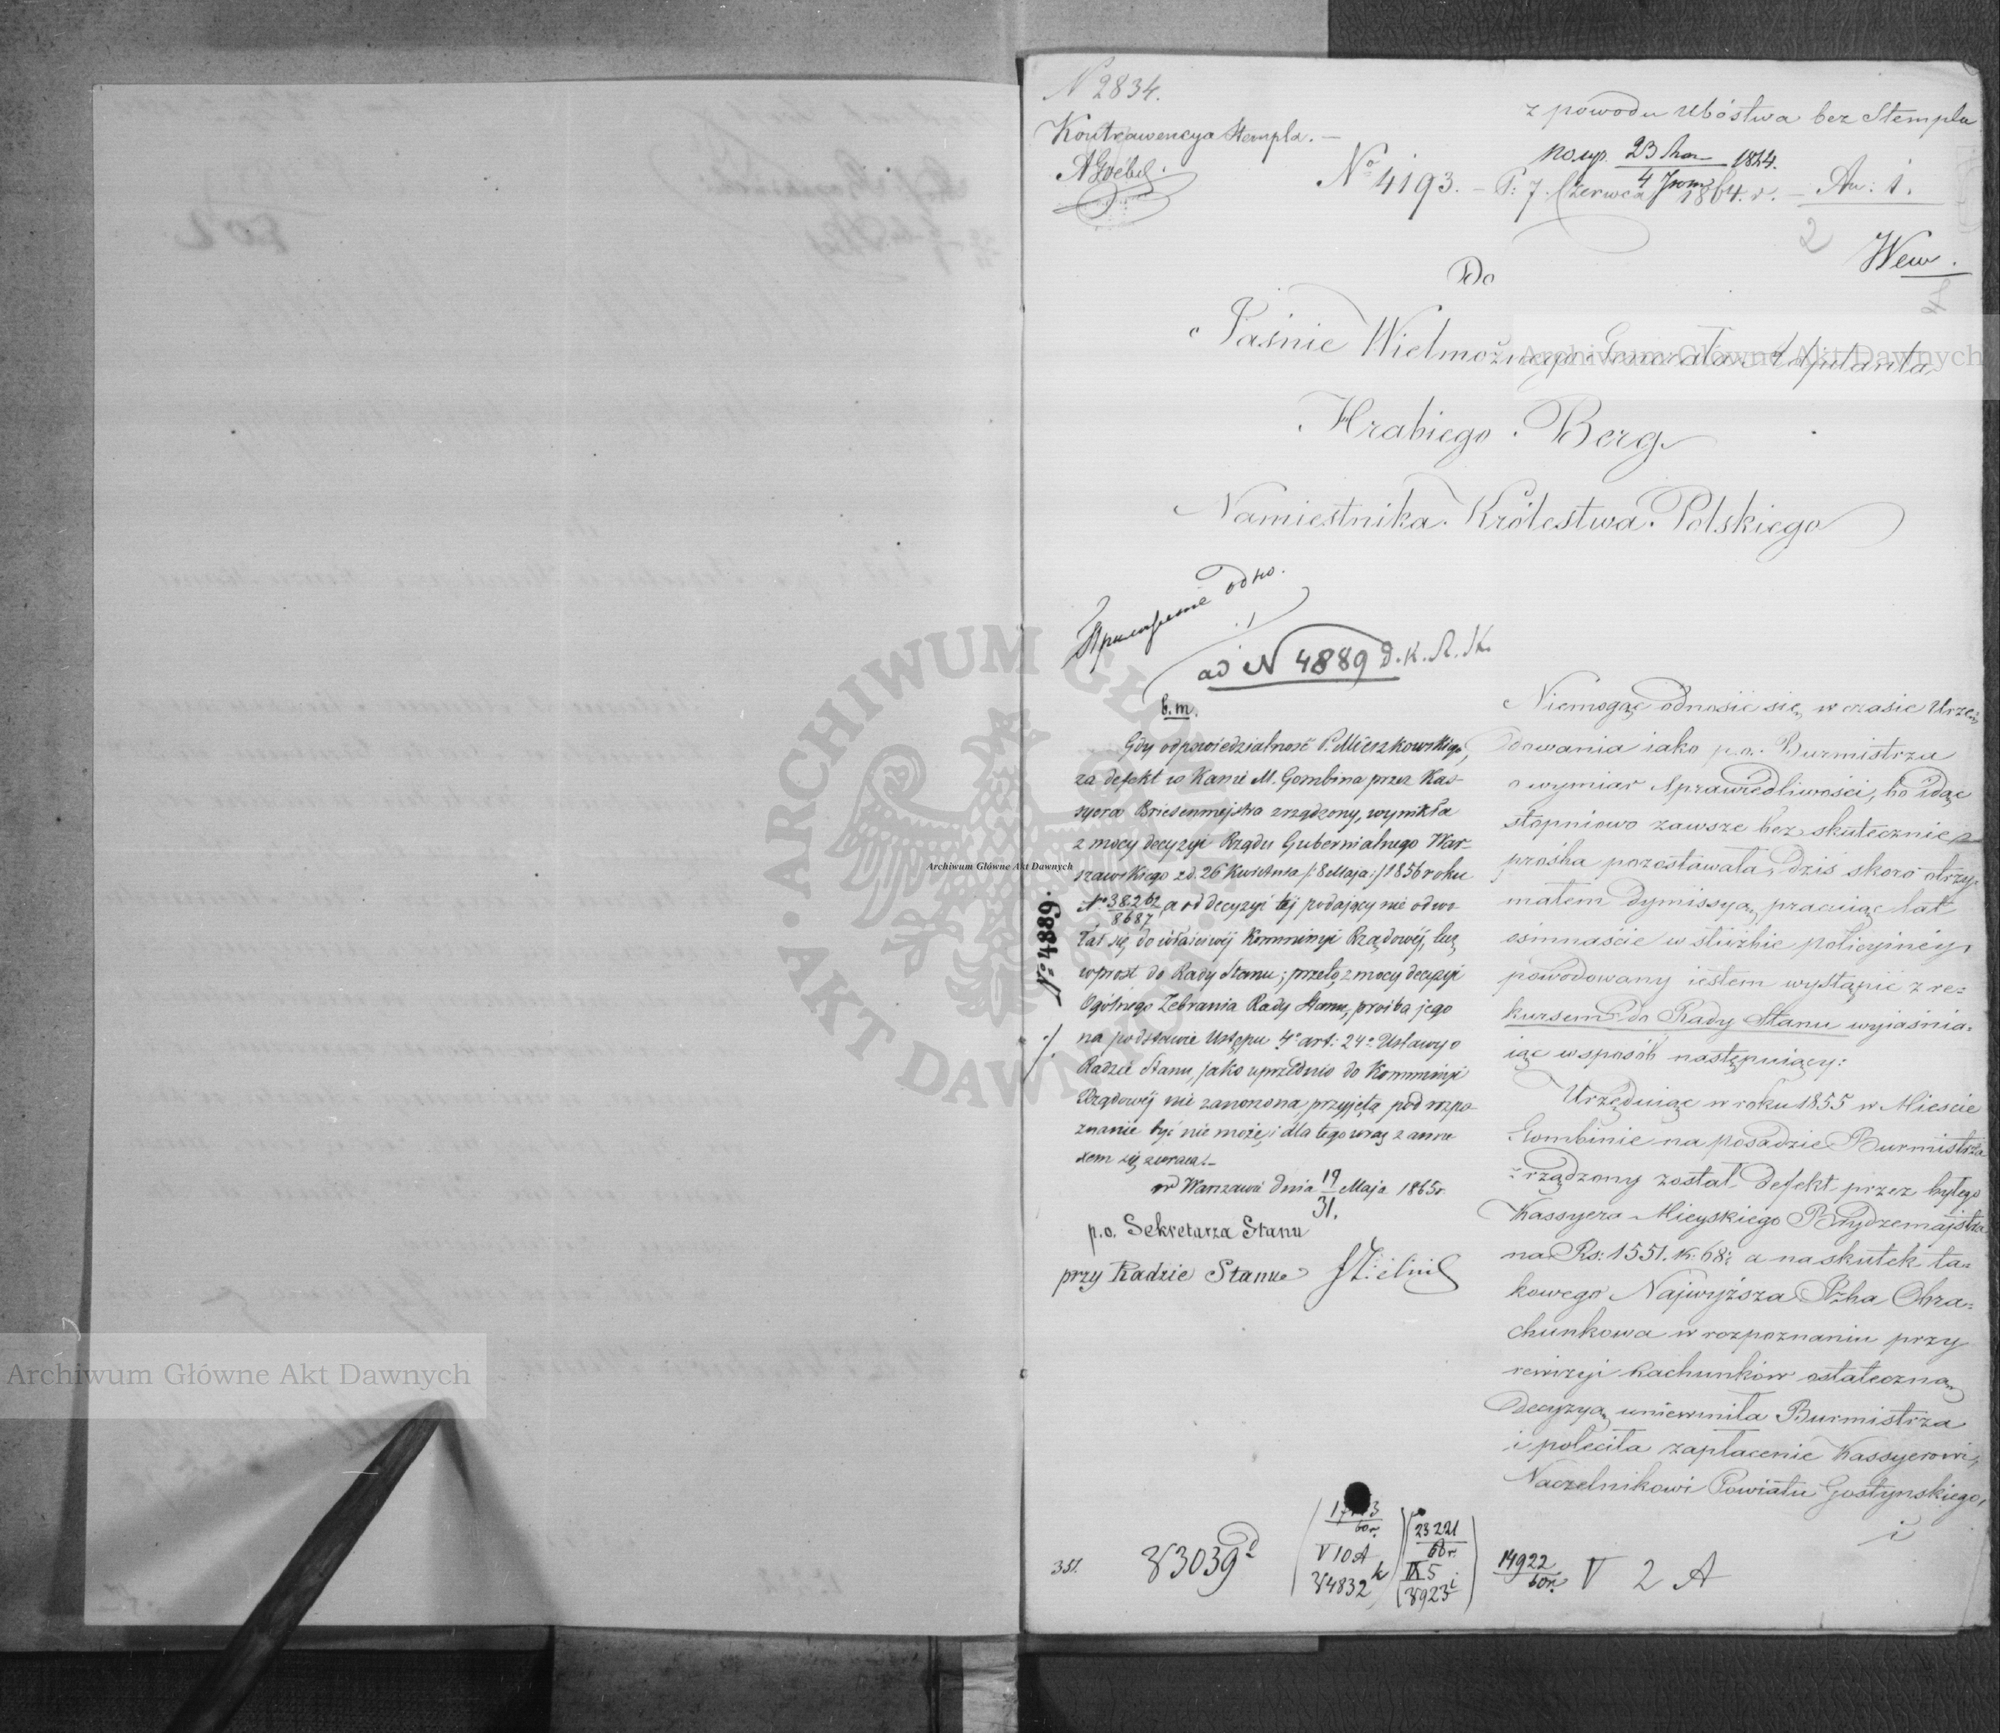 N 2834.
Kontrawencya Stempla. —
AGoébel.
z powodu ubóstwa bez Stempla
23
4
1864.
No 4193. — P: 7. Czerwca 1864. r. — An: 1.
2
Wew.
Do
Jaśnie Wielmożnego Generała Adjutanta
Hrabiego Berg
Namiestnika Królestwa Polskiego
ad N 4889 D. K.
b. m.
Gdy odpowiedzialność P. Mieszkowskiego,
za defekt w Kassie M. Gombina przez Kas-
syera Briesenmejstra zrządzony, wynikła
z mocy decyzyi Rządu Gubernialnego War-
szawskiego z d. 26 Kwietnia /: 8 Maja :/ 1856 roku
No 38262/8687, a od decyzyi tej podający nie odwo-
łał się do właściwej Kommissyi Rządowéj, lecz
wprost do Rady Stanu; przeto z mocy decyzyi
Ogólnego Zebrania Rady Stanu, prośba jego
na podstawie Ustępu 4o art: 24o Ustawy o
Radzie Stanu, jako uprzednio do Kommissyi
Rządowéj nie zanoszona, przyjętą pod rozpo-
znanie być nie może, i dla tego wraz z anne-
xem się zwraca. —
w Warszawie dnia 19/31. Maja 1865 r.
p.o. Sekretarza Stanu
przy Radzie Stanu
No 4889.
Niemogąc odnosić się w czasie Urzę-
dowania iako p.o. Burmistrza
o wymiar Sprawiedliwości, bo idąc
stopniowo zawsze bez skutecznie
prośba pozostawała, dziś skoro otrzy-
małem Dymissyą, pracuiąc lat
ośmnaście w służbie policyinéy,
powodowany iestem wystąpić z re-
kursem do Rady Stanu wyiaśnia-
iąc w sposób następuiący:
Urzęduiąc w roku 1855 w Mieście
Gombinie na posadzie Burmistrza
zrządzony został Defekt przez byłego
Kassyera Mieyskiego Brydzemajstra
na Rs: 1551. k: 68; a na skutek ta-
kowego Najwyższa Izba Obra-
chunkowa w rozpoznaniu przy
rewizyi Rachunków ostateczną
Decyzyą uniewinniła Burmistrza
i poleciła zapłacenie Kassyerowi,
Naczelnikowi Powiatu Gostynskiego,
i
351.
33039 d
V 10 A
34832 k
23221
60 r.
IX 5
3923 i
14922
60 r.
V 2 A
Archiwum Główne Akt Dawnych
Archiwum Główne Akt Dawnych
Archiwum Główne Akt Dawnych
ARCHIWUM GŁÓWNE AKT DAWNYCH